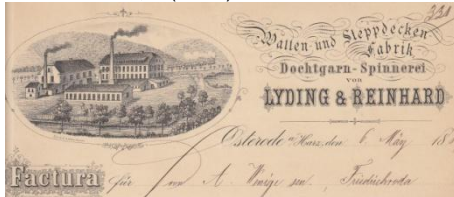 331
Watten und Steppdecken
Fabrik
Dochtgarn-Spinnerei
von
LYDING & REINHARD
Osterode a/Harz, den 6. März 18
Factura für A. Friedrichroda